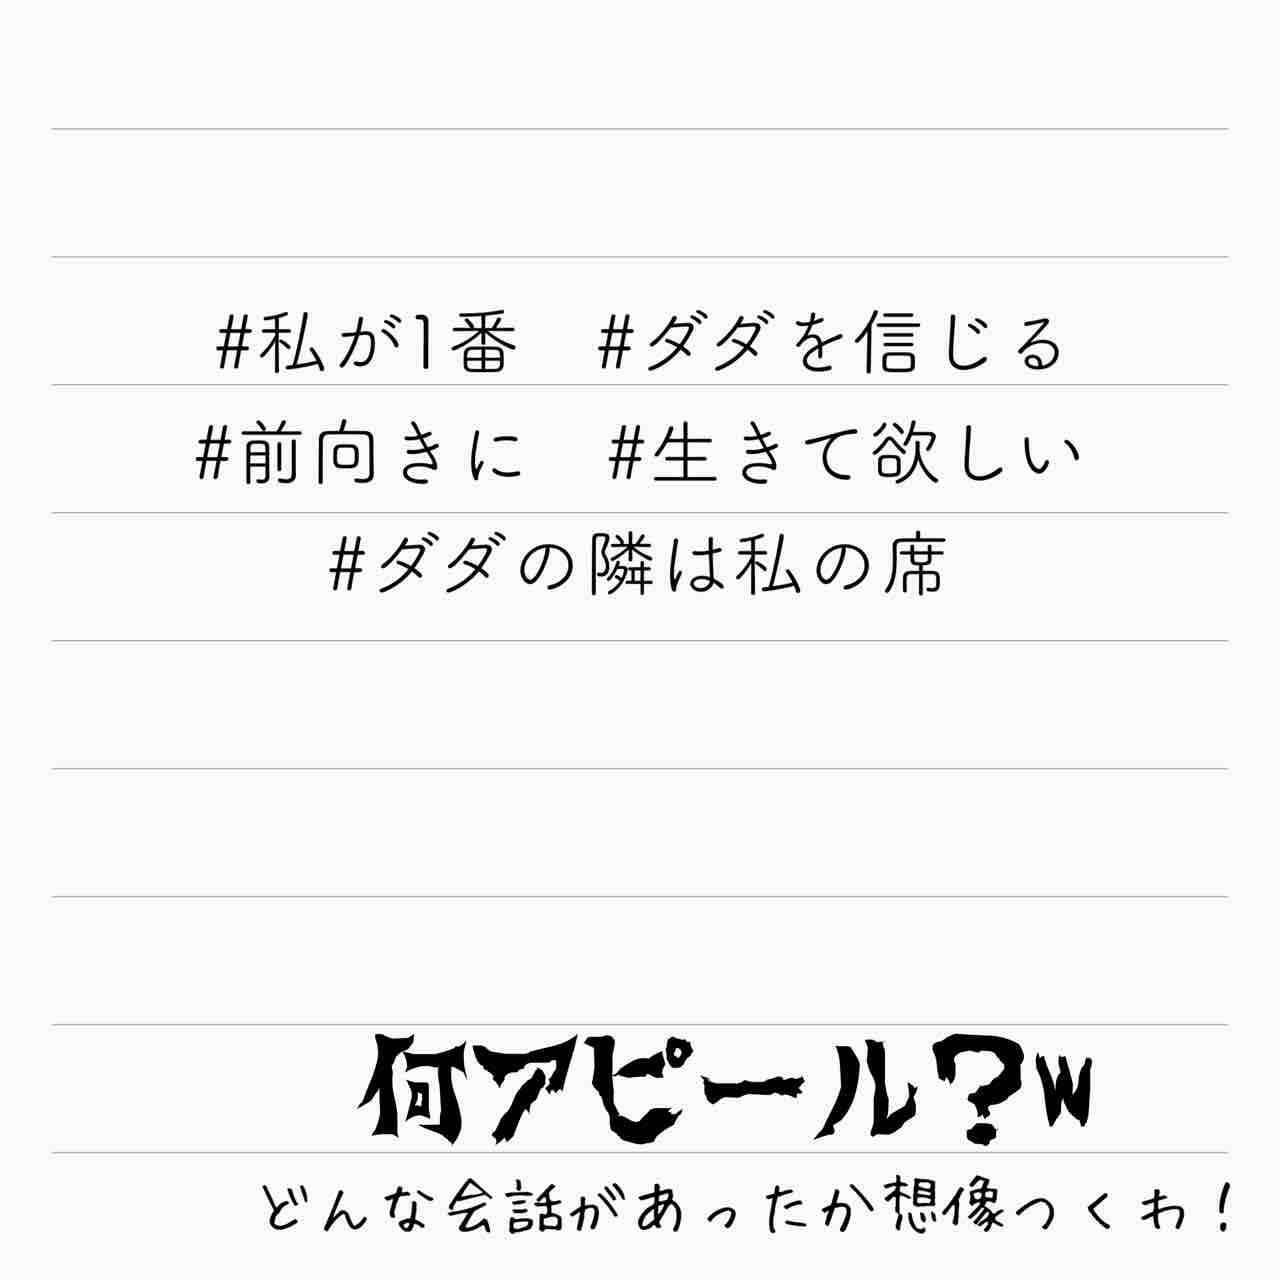 #私が1番　#ダダを信じる
#前向きに　#生きて欲しい
#ダダの隣は私の席
何アピール？w
どんな会話があったか想像つくわ！